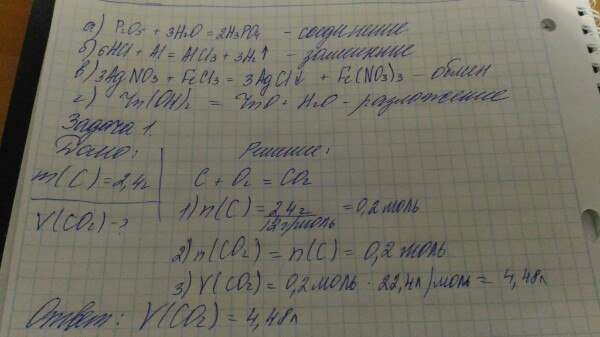 а) P₂O₅ + 3H₂O = 2H₃PO₄ - соединение
б) 6HCl + Al = AlCl₃ + 3H₂↑ - замещение
в) 3AgNO₃ + FeCl₃ = 3AgCl↓ + Fe(NO₃)₃ - обмен
г) Zn(OH)₂ = ZnO + H₂O - разложение
Задача 1.
Дано:
m(C) = 2,4г
V(CO₂) - ?
Решение:
C + O₂ = CO₂
1) n(C) = 2,4г / 12г/моль = 0,2 моль
2) n(CO₂) = n(C) = 0,2 моль
3) V(CO₂) = 0,2 моль · 22,4л/моль = 4,48л
Ответ: V(CO₂) = 4,48л